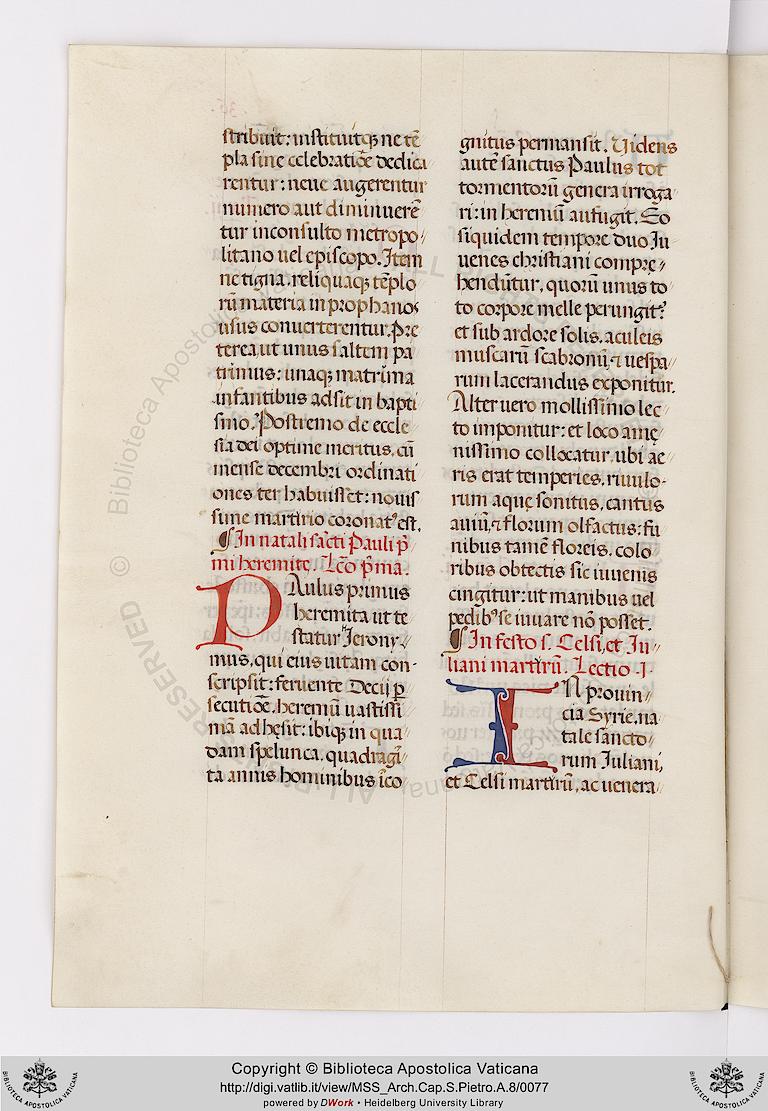 stribuit: instituitq; ne tē
pla sine celebratiōe dedica
rentur: neue augerentur
numero aut diminuerē
tur inconsulto metropo
litano uel episcopo. Item
ne tigna, reliquaq; tēplo
rū materia in prophanos
usus conuerterentur. Pre
terea ut unus saltem pa
trinus: unaq; matrima
infantibus adsit in bapti
smo. Postremo de eccle
sia dei optime meritus, cū
mense decembri ordinati
ones ter habuisset: nouis
sime martirio coronat᾽ est.
¶ In natali sācti Pauli p̄
mi heremite. Lc̄o p̄ma.
PAulus primus
heremita ut te
statur Ierony
mus, qui eius uitam con
scripsit: feruente Decij p̱
secutiōe, heremū uastissi
mā adhęsit: ibiq; in qua
dam spelunca, quadragī
ta annis hominibus īco
gnitus permansit. Uidens
autē sanctus Paulus tot
tormentorū genera irroga
ri: in heremū aufugit. Eo
siquidem tempore duo Iu
uenes christiani compre
hendūtur, quorū unus to
to corpore melle perungit᾽:
et sub ardore solis, aculeis
muscarū scabronū, ⁊ uespa
rum lacerandus exponitur.
Alter uero mollissimo lec
to imponitur: et loco amę
nissimo collocatur, ubi ae
ris erat temperies, riuulo
rum aquę sonitus, cantus
auiū, ⁊ florum olfactus: fu
nibus tamē floreis, colo
ribus obtectis sic iuuenis
cingitur: ut manibus uel
pedib᾽ se iuuare nō posset.
¶ In festo s. Celsi, et Iu
liani martirū. Lectio .I.
IN prouin
cia Syrie, na
tale sancto
rum Iuliani,
et Celsi martirū, ac uenera
Copyright © Biblioteca Apostolica Vaticana
http://digi.vatlib.it/view/MSS_Arch.Cap.S.Pietro.A.8/0077
powered by DWork • Heidelberg University Library